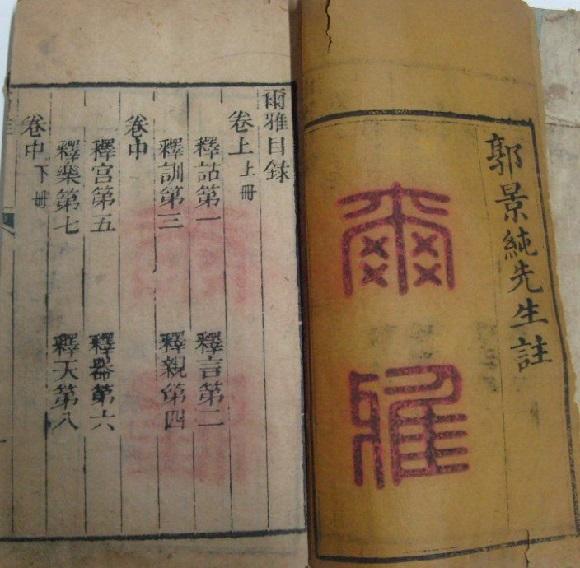 郭景純先生註
爾雅
爾雅目録
卷上 上冊
釋詁第一 釋言二
釋訓第三 釋親第四
卷中
釋宮第五 釋器第六
釋樂第七 釋天第八
卷中 下冊